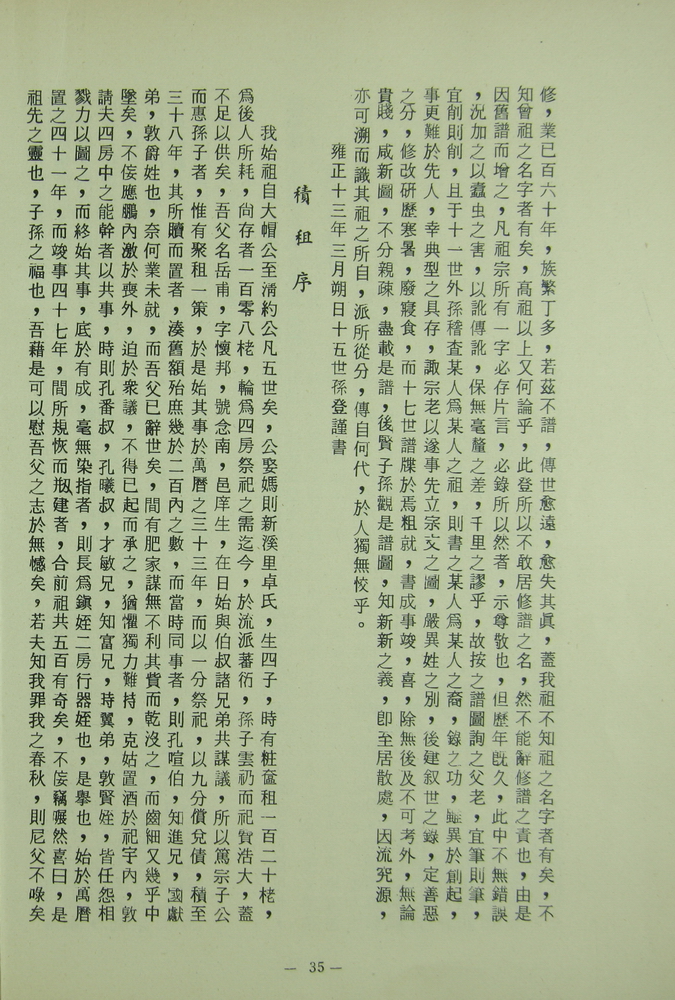 修，業已百六十年，族繁丁多，若茲不譜，傳世愈遠，愈失其眞，蓋我祖不知祖之名字者有矣，不
知曾祖之名字者有矣，高祖以上又何論乎，此登所以不敢居修譜之名，然不能辭修譜之責也，由是
因舊譜而增之，凡祖宗所有一字必存片言，必錄所以然者，示尊敬也，但歷年旣久，此中不無錯誤
，況加之以蠧虫之害，以訛傳訛，保無毫釐之差，千里之謬乎，故按之譜圖詢之父老，宜筆則筆，
宜削則削，且于十一世外孫稽査某人爲某人之祖，則書之某人爲某人之裔，錄之功，雖異於創起，
事更難於先人，幸典型之具存，諏宗老以遂事先立宗支之圖，嚴異姓之別，後建叙世之錄，定善惡
之分，修改硏歷寒暑，廢寢食，而十七世譜牒於焉粗就，書成事竣，喜，除無後及不可考外，無論
貴賤，咸新圖，不分親疎，盡載是譜，後賢子孫觀是譜圖，知新新之義，卽至居散處，因流究源，
亦可溯而識其祖之所自，派所從分，傳自何代，於人獨無恔乎。
雍正十三年三月朔日十五世孫登謹書
積租序
我始祖自大帽公至淸約公凡五世矣，公娶媽則新溪里卓氏，生四子，時有粧奩租一百二十栳，
爲後人所耗，尙存者一百零八栳，輪爲四房祭祀之需迄今，於流派蕃衍，孫子雲礽而祀費浩大，蓋
不足以供矣，吾父名岳甫，字懷邦，號念南，邑庠生，在日始與伯叔諸兄弟共謀議，所以篤宗子公
而惠孫子者，惟有聚租一策，於是始其事於萬曆之三十三年，而以一分祭祀，以九分償兌債，積至
三十八年，其所贖而置者，湊舊額殆庶幾於二百內之數，而當時同事者，則孔喧伯，知進兄，國獻
弟，敦爵姓也，奈何業未就，而吾父已辭世矣，間有肥家謀無不利其貲而乾沒之，而齒細又幾乎中
墜矣，不侫應鵬內激於喪外，迫於衆議，不得已起而承之，猶懼獨力難持，克姑置酒於祀宇內，敦
請夫四房中之能幹者以共事，時則孔番叔，孔曦叔，才敏兄，知富兄，琦翼弟，敦賢姪，皆任怨相
戮力以圖之，而終始其事，底於有成，毫無染指者，則長爲鎭姪二房行器姪也，是擧也，始於萬曆
置之四十一年，而竣事四十七年，間所規恢而瓶建者，合前祖共五百有奇矣，不侫竊囅然喜曰，是
祖先之靈也，子孫之福也，吾藉是可以慰吾父之志於無憾矣，若夫知我罪我之春秋，則尼父不喙矣
— 35 —